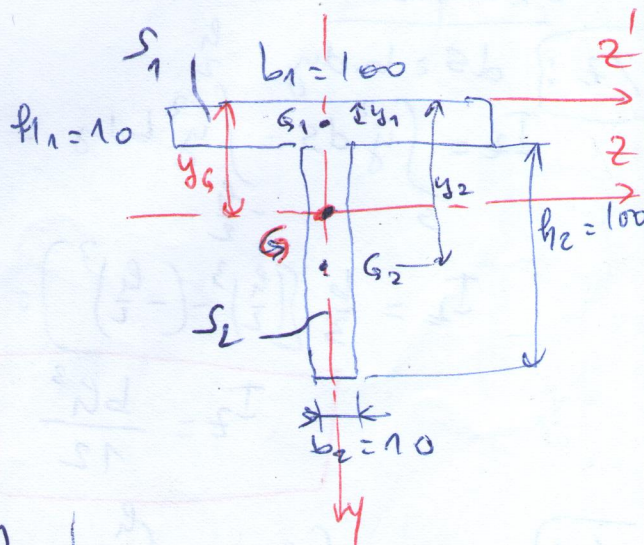 S1
b1 = 100
z'
h1 = 10
G1
y1
z
yG
y2
h2 = 100
G
G2
S2
b2 = 10
y